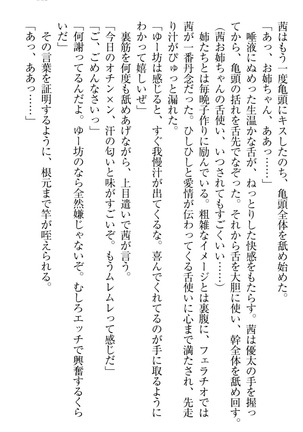 茜はもう一度亀頭にキスしたのち、亀頭全体を舐め始めた。
「あっ、お姉ちゃん、ああぁっ……」
唾液にぬめった生温かな舌が、ねっとりした快感をもたらす。茜は優太の手を握っ
て、亀頭の括れを舌先でなぞった。それから舌を大胆に使い、幹全体を舐め回す。
(茜お姉ちゃんの舌使い、いつされてもすごくいい……)
姉たちとは毎晩子作りに励んでいる。粗雑なイメージとは裏腹に、フェラチオでは
茜が一番丹念だった。ひしひしと愛情が伝わってくる舌使いに心まで満たされ、先走
り汁がぴゅっと漏れた。
「ゆー坊は感じると、すぐ我慢汁が出てくるな。喜んでくれてるのが手に取るように
わかって嬉しいぜ」
裏筋を何度も舐めあげながら、上目遣いで茜が言う。
「今日のオチン×ン、汗の匂いと味がすごいぞ。もうムレムレって感じだ」
「ご、ごめんなさいっ」
「何謝ってるんだよ。ゆー坊のなら全然嫌じゃないぞ。むしろエッチで興奮するくら
いだ」
その言葉を証明するように、根元まで竿が咥えられる。
「あっ、ああっ……」